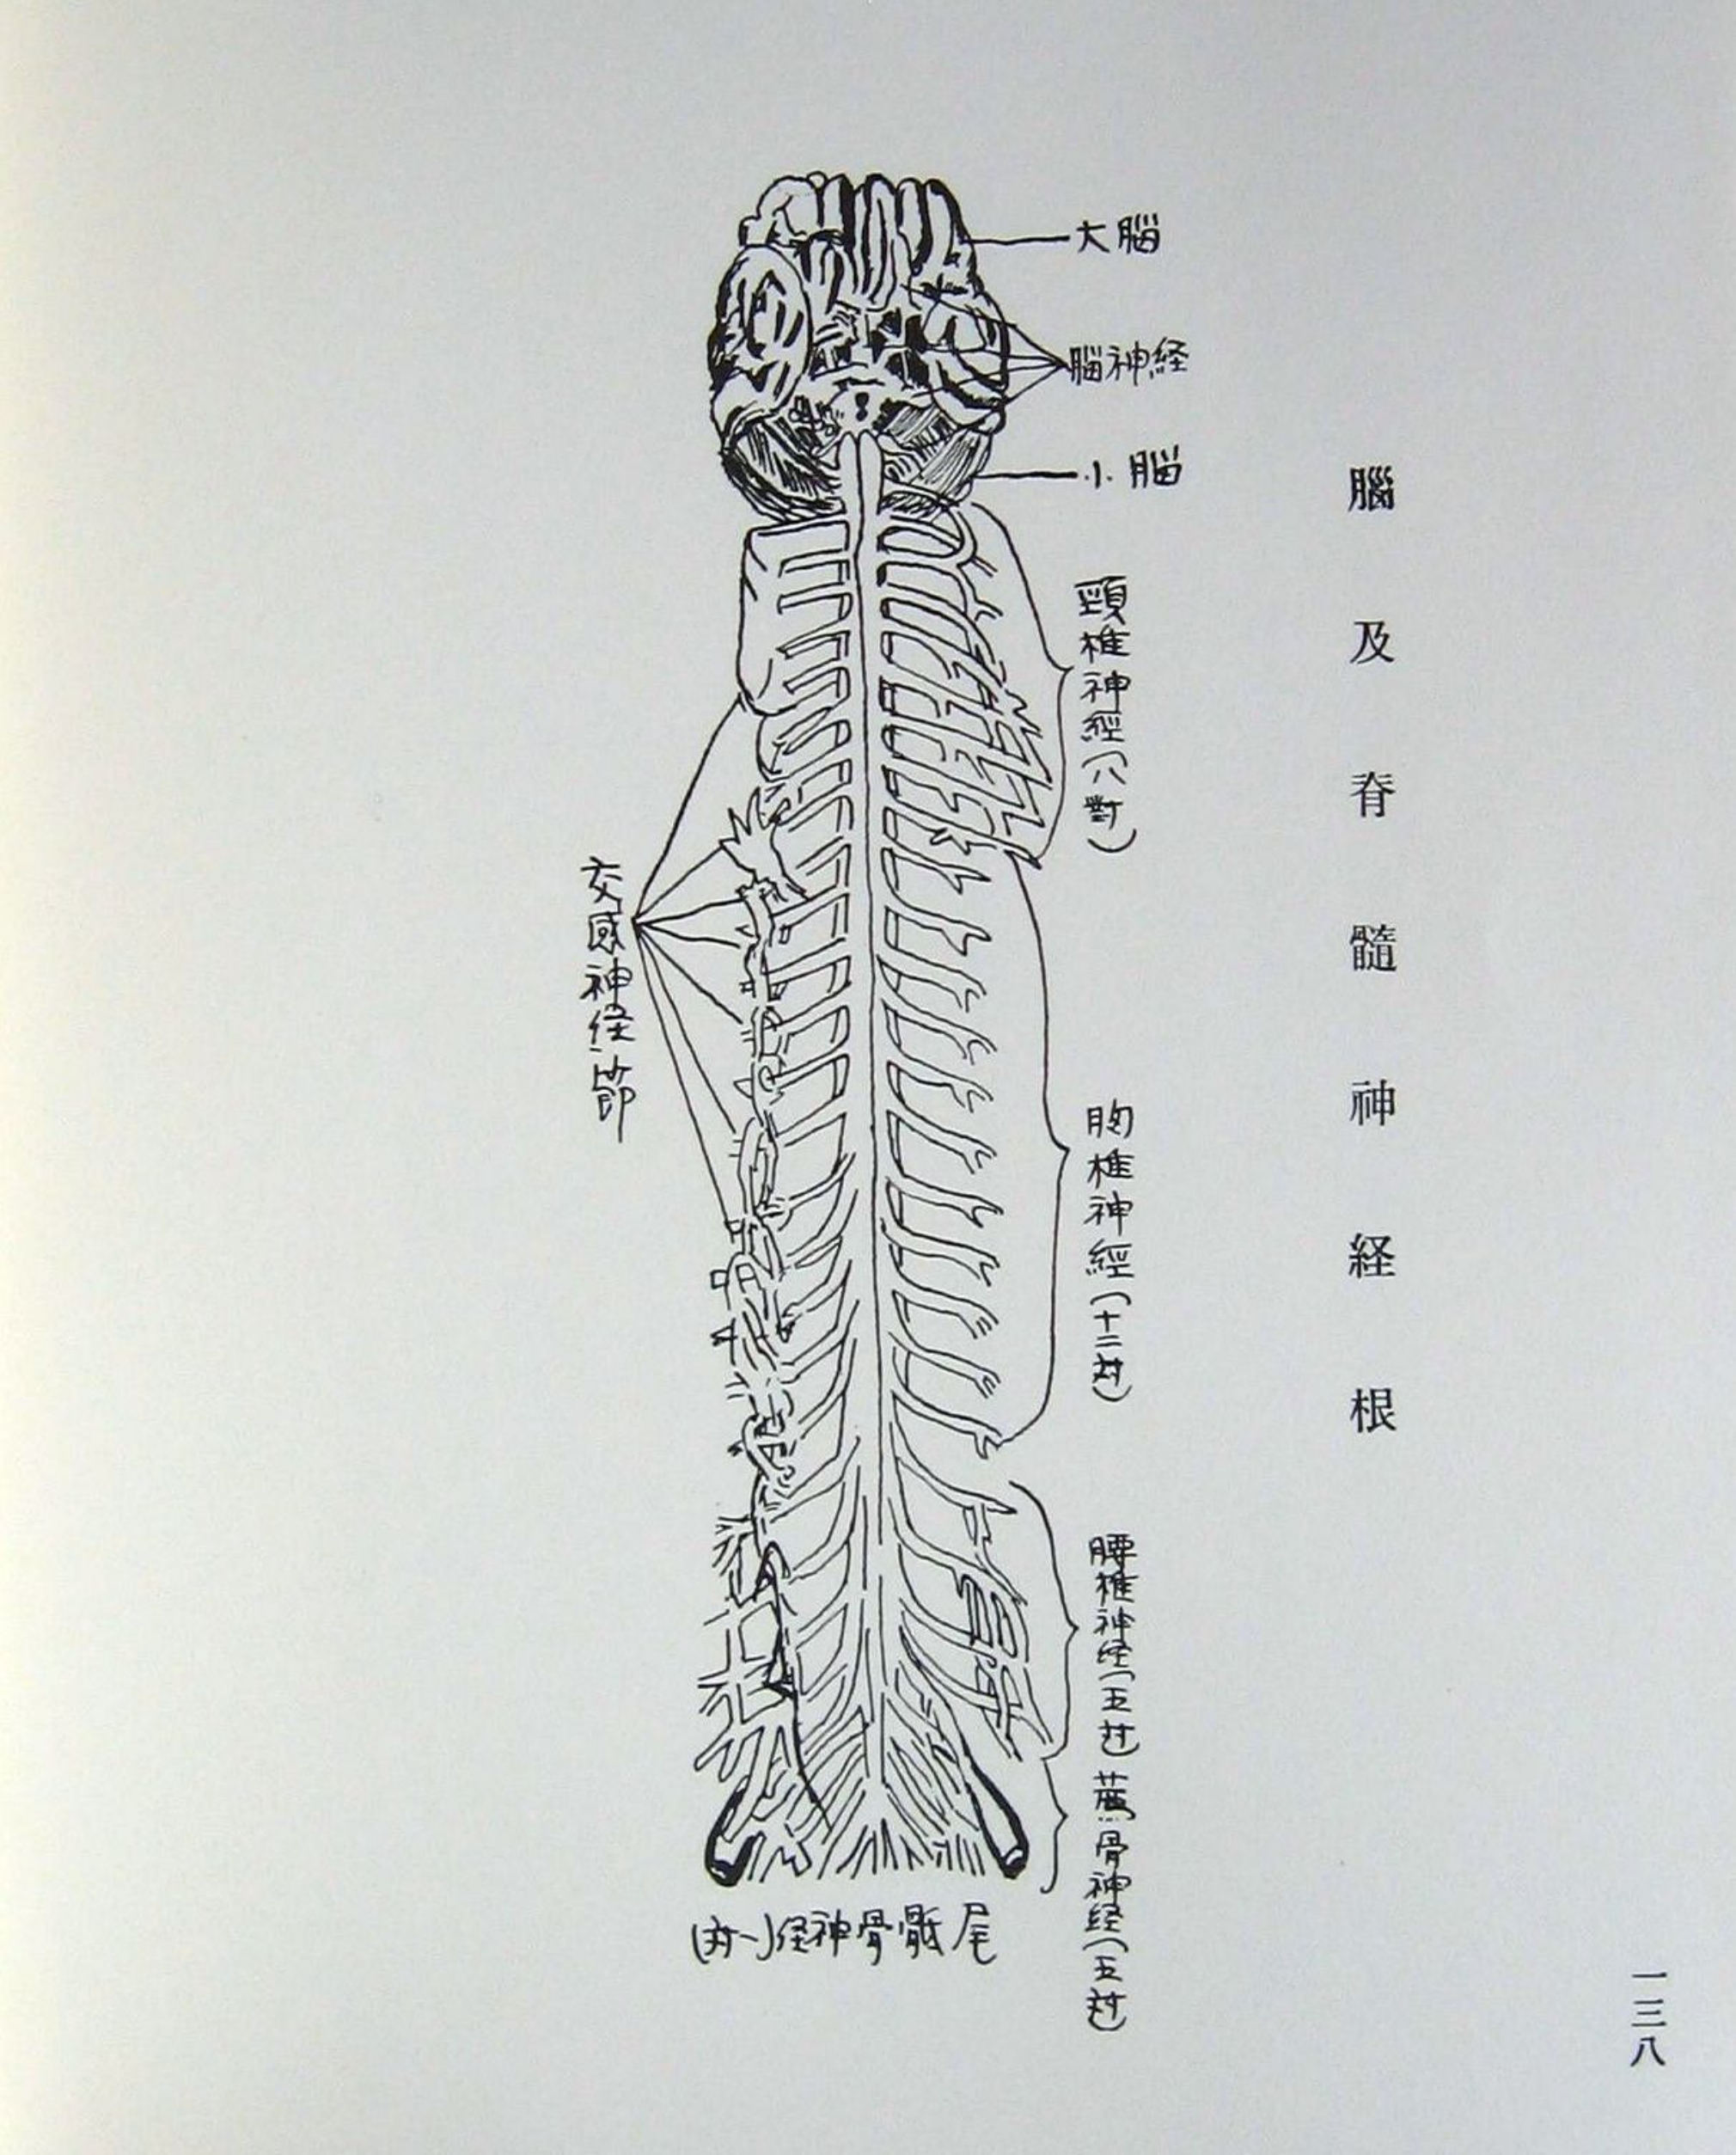 腦及脊髓神経根
大腦
腦神経
小腦
頸椎神經(八對)
胸椎神經(十二対)
腰椎神経(五対)
骨神経(五対)
交感神経節
尾骶骨神経(一対)
一三八